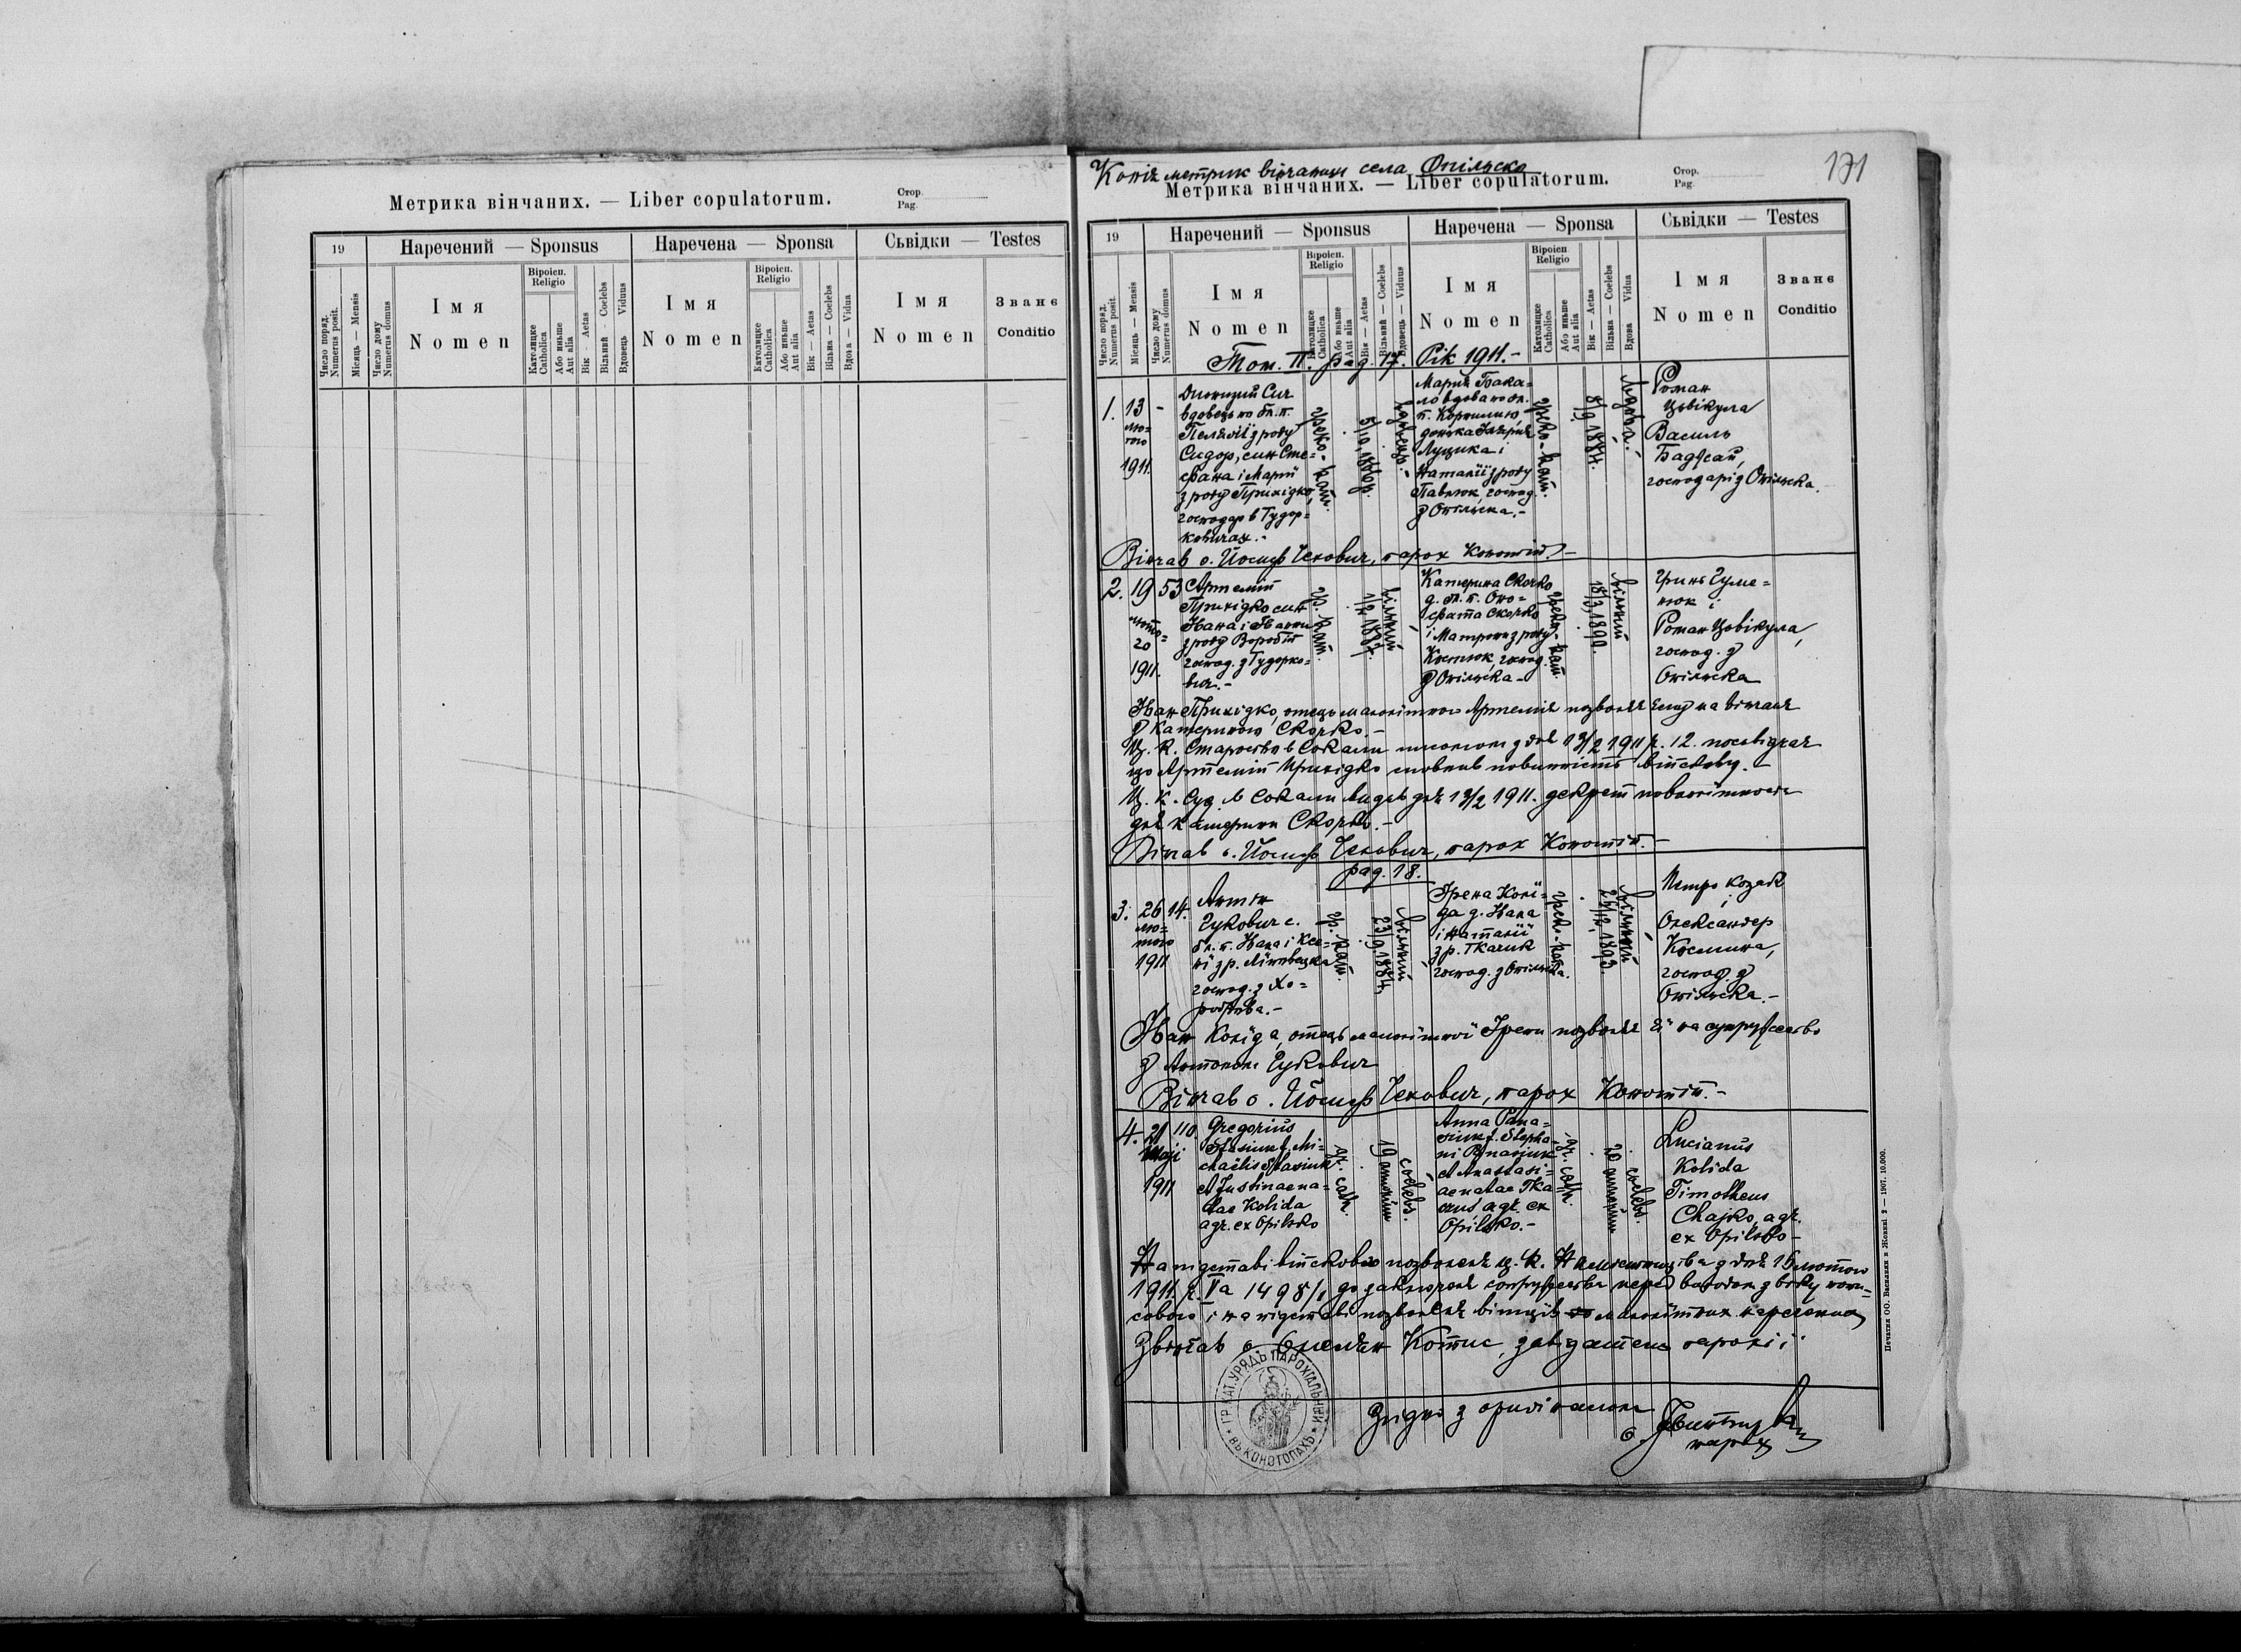 Метрика вінчаних. — Liber copulatorum.
Стор.
Pag.
19
Наречений — Sponsus
Наречена — Sponsa
Сьвідки — Testes
Число поряд.
Numerus posit.
Місяць — Mensis
Число дому
Numerus domus
Імя
Nomen
Віроісп.
Religio
Католицке
Catholica
Або иньше
Aut alia
Вік — Aetas
Вільний — Coelebs
Вдовець — Viduus
Імя
Nomen
Віроісп.
Religio
Католицке
Catholica
Або иньше
Aut alia
Вік — Aetas
Вільна — Coelebs
Вдова — Vidua
Імя
Nomen
Званє
Conditio
171
Копія метрик вінчаних села Опільско
Метрика вінчаних. — Liber copulatorum.
Стор.
Pag.
19
Наречений — Sponsus
Наречена — Sponsa
Сьвідки — Testes
Число поряд.
Numerus posit.
Місяць — Mensis
Число дому
Numerus domus
Імя
Nomen
Віроісп.
Religio
Католицке
Catholica
Або иньше
Aut alia
Вік — Aetas
Вільний — Coelebs
Вдовець — Viduus
Імя
Nomen
Віроісп.
Religio
Католицке
Catholica
Або иньше
Aut alia
Вік — Aetas
Вільна — Coelebs
Вдова — Vidua
Імя
Nomen
Званє
Conditio
Том. II. pag. 17. Рік 1911.-
1. 13 -
лю=
того
1911.
вдовець по бл. п.
Пелягії з роду
Сидор, син Сте=
фана і Марії
з роду Прихідко,
господар в Тудор=
ковичах.-
греко-кат.
вдовець.-
Марія Бака=
ло вдова по бл.
п. Корнилию,
донька
Луцика і
Наталії з роду
Павлюк, господ.
з Опільска.-
греко-кат.
вдова.-
Роман
Цьвікула
Василь
Баджай,
господарі з Опільска.
Вінчав о. Йосиф Чехович, парох Конотіп.-
2. 19 53
люто=
го
1911.
Артемій
Прихідко син
Івана і Іванни
з роду Воробій
господ. з Тудорко=
вич.-
гр. кат.
1/2 1887.
вільний
Катерина Скорко
д. бл. п. Оно=
фрата Скорко
і Матрони з роду
Костюк, господ.
з Опільска -
греко-кат.
18/3 1890.
вільний
Гринь Гуме=
нюк і
Роман Цьвікула,
господ. з
Опільска
Іван Прихідко, отець малолітного Артемія позваляє Єму на вінчанє
з Катериною Скорко.-
Ц. к. Староство в Сокали письмом з дня 13/2 1911 р. 12. посьвідчає
що Артемій Прихідко сповнив повинність війскову.-
Ц. к. Суд в Сокали видав дня 13/2 1911. декрет повнолітности
для Катерини Скорко.-
Вінчав о. Йосиф Чехович, парох Конотіп.-
pag. 18.
3. 26 14.
лю=
того
1911
Антін
Гукович с.
бл. п. Івана і Ксе=
ні з р.
господ. з Хо=
гр. кат.
23/9 1884.
вільний
Ірена Колі=
да д. Івана
і Наталії
з р. Ткачик
господ. з Опільска.
греко-кат.
вільний
Петро Козак
і
Олександер
Космина,
господ. з
Опільска.-
Іван Коліда, отець малолітної Ірени позваляє Єї на супружество
з Антоном Гукович
Вінчав о. Йосиф Чехович, парох Конотіп.-
4. 21 110.
Maji
1911
Gregorius
Stasiuk f. Mi=
chaëlis Stasiuk
et Justinae na=
tae Kolida
agr. ex Opilsko
gr. cath.
19 annorum
coelebs.
Anna Pana=
siuk f. Stepha=
ni Panasiuk
et Anastasi=
ae natae Tka
czuk agr. ex
Opilsko.-
gr. cath.
20 annorum
coelebs.
Lucianus
Kolida
Timotheus
Chajko, agr.
ex Opilsko-
На підставі війскового позволеня ц. к. Намісництва з дня 15 лютого
1911. р. Va 1498/1 до заключеня супружества перед виходом з віку попи=
сового і на підставі позволеня вітців малолітних наречених
Звінчав о. Ємелян Котис, завідатель парохії
ГР. КАТ. УРЯДЪ ПАРОХІАЛЬНЫЙ
ВЪ КОНОТОПАХЪ
Згідно з оригіналом
о.
парох
Печатня ОО. Василиян в Жовкві 2 — 1907. 10.000.